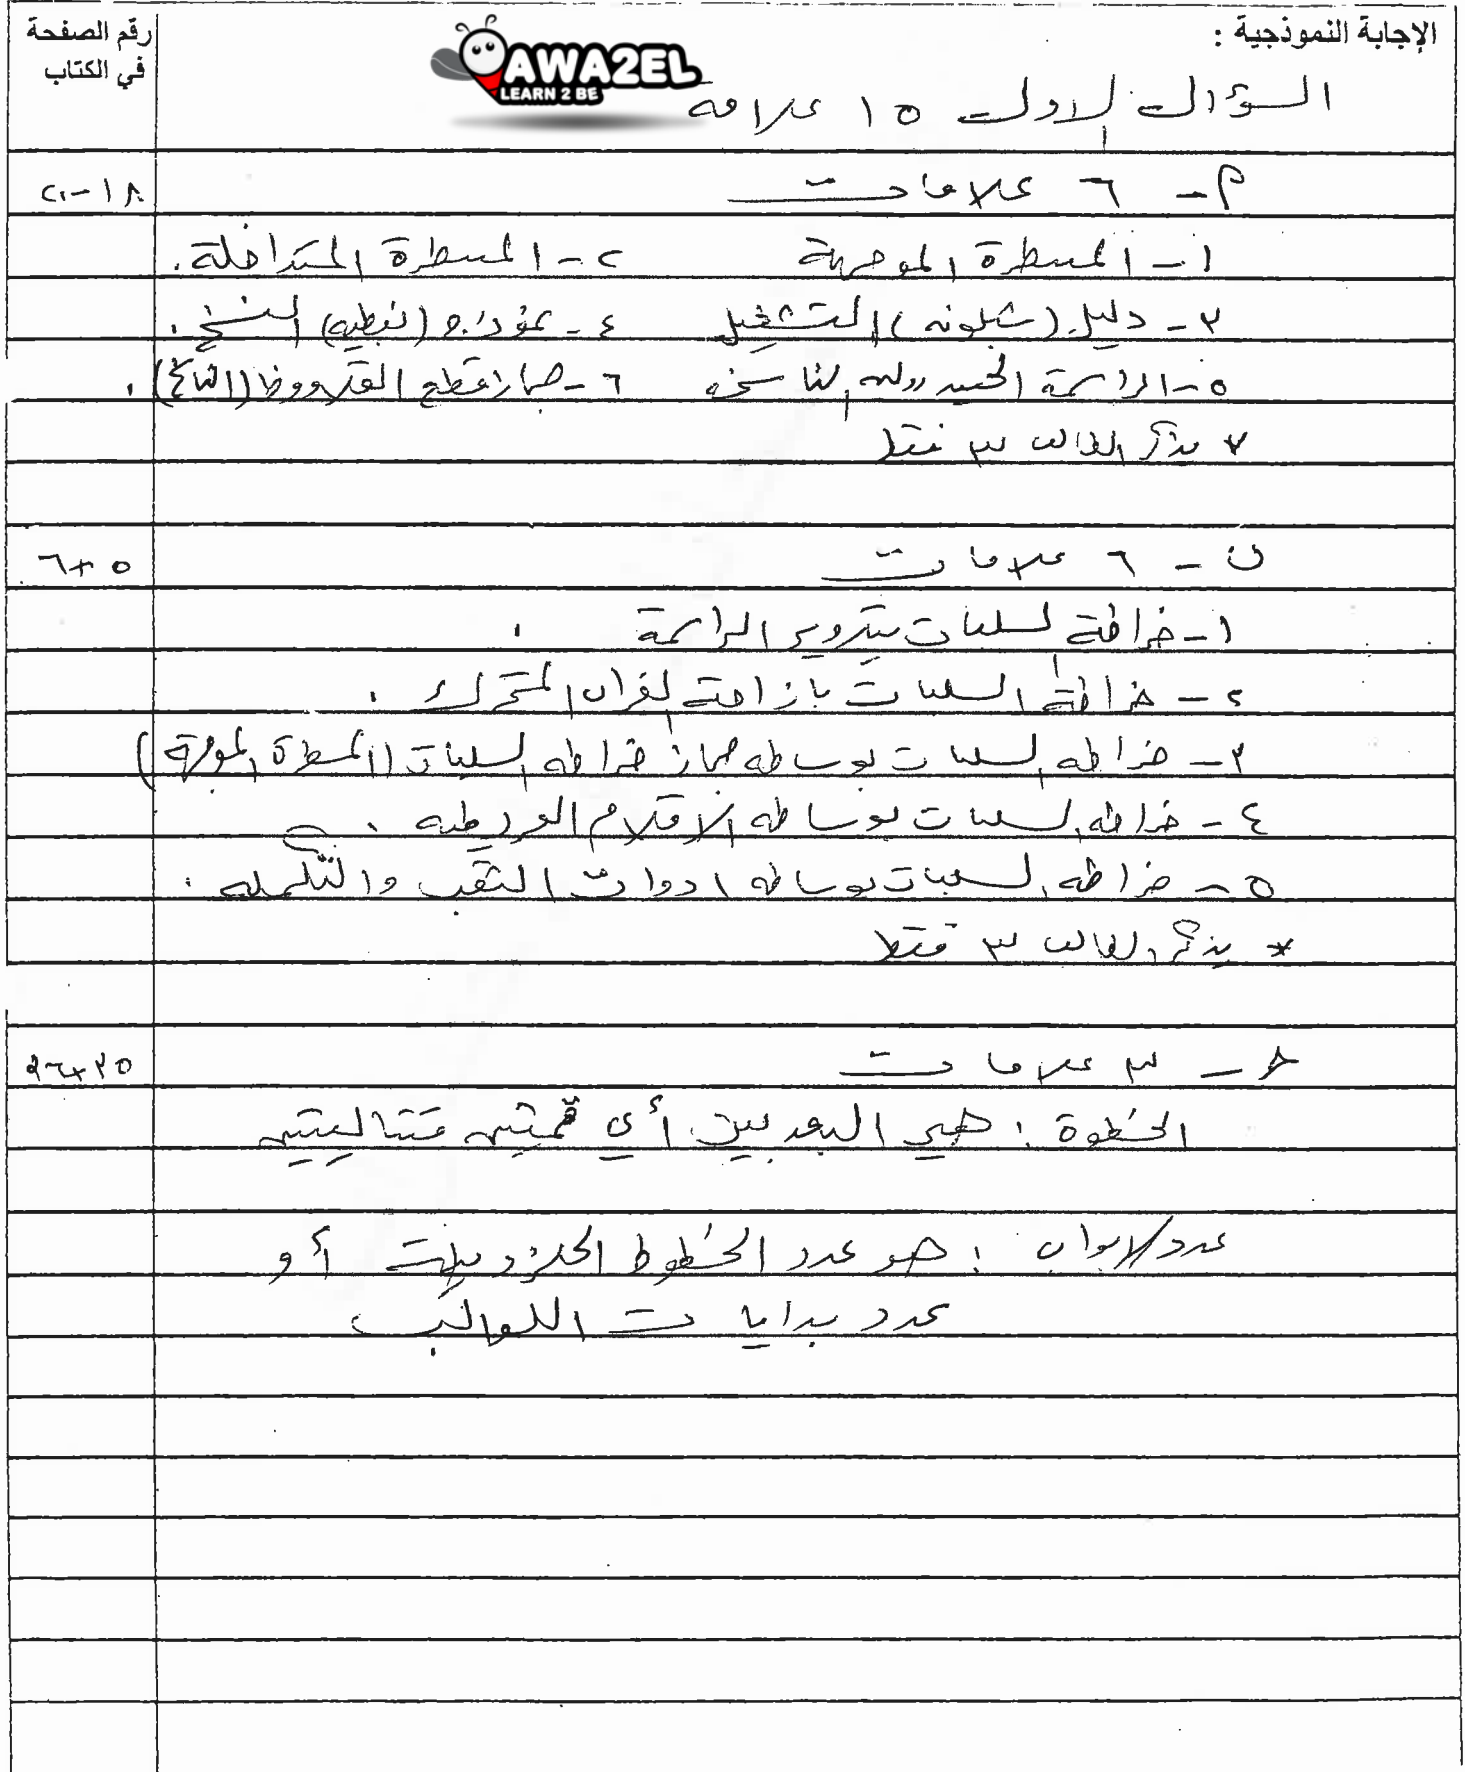 الإجابة النموذجية :
رقم الصفحة
في الكتاب
AWA2EL
LEARN 2 BE
السؤال الاول ١٥ علامة
أ - ٦ علامات
١٨-٢٠
١ - المسطرة الموجهة ٢ - المسطرة المتداخلة .
٣ - دليل (شبلونه) التشغيل ٤ - نموذج (نبطيه) النسخ .
٥ - الراسمة الناسخه ٦ - جهاز قطع القلاووظ (التابع) .
* يذكر الطالب ٣ فقط
ب - ٦ علامات
٥+٦
١ - خراطة السلبات بتدوير الراسمة .
٢ - خراطة السلبات بازاحة الغراب المتحرك .
٣ - خراطه السلبات بوساطه جهاز خراطه السلبات (المسطرة الموجهة)
٤ - خراطه السلبات بوساطه الاقلام العريضه .
٥ - خراطه السلبات بوساطه ادوات الثقب والتكملة .
* يذكر الطالب ٣ فقط
ج - ٣ علامات
٢٥+٢٦
الخطوة : هي البعد بين أي قمتين متتاليتين
عدد الابواب : هو عدد الخطوط الحلزونية أو
عدد بدايات اللوالب